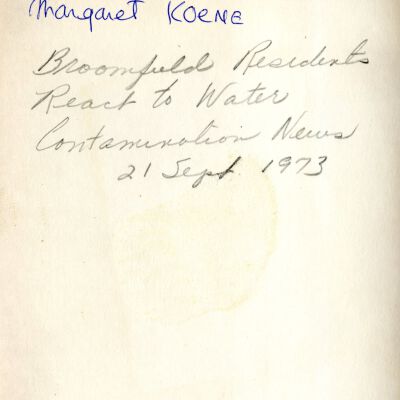 Margaret KOENE
Broomfield Residents
React to Water
Contamination News
21 Sept. 1973